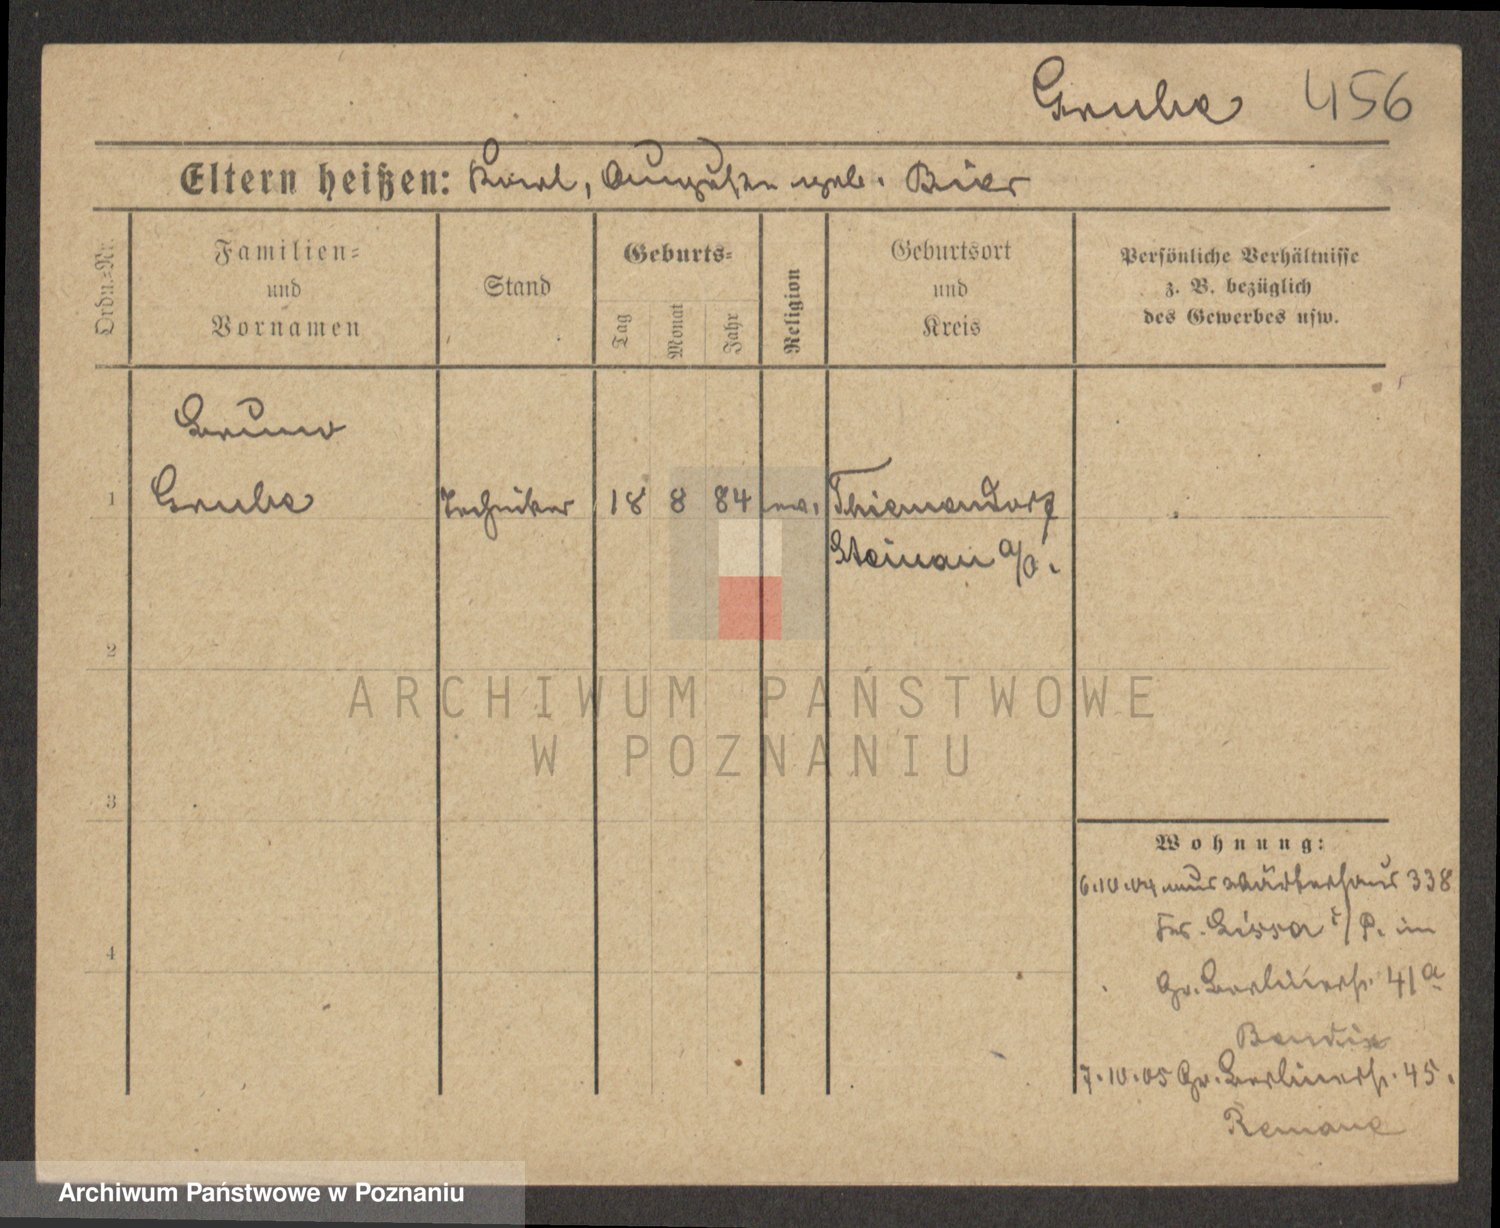 Grube 456
Eltern heißen: Karl, Auguste geb. Bier
Ordn.-Nr.
Familien-
und
Vornamen
Stand
Geburts-
Tag
Monat
Jahr
Religion
Geburtsort
und
Kreis
Persönliche Verhältnisse
z. B. bezüglich
des Gewerbes usw.
Bruno
1 Grube Techniker 18 8 84 ev. Thiemendorf
Steinau a/O.
2
ARCHIWUM PAŃSTWOWE
W POZNANIU
3
Wohnung:
6.10.04 aus Wärterhaus 338
Lissa i/P. in
Gr. Berlinerstr. 41a
Bendix
4
7.10.05 Gr. Berlinerstr. 45.
Remane
Archiwum Państwowe w Poznaniu